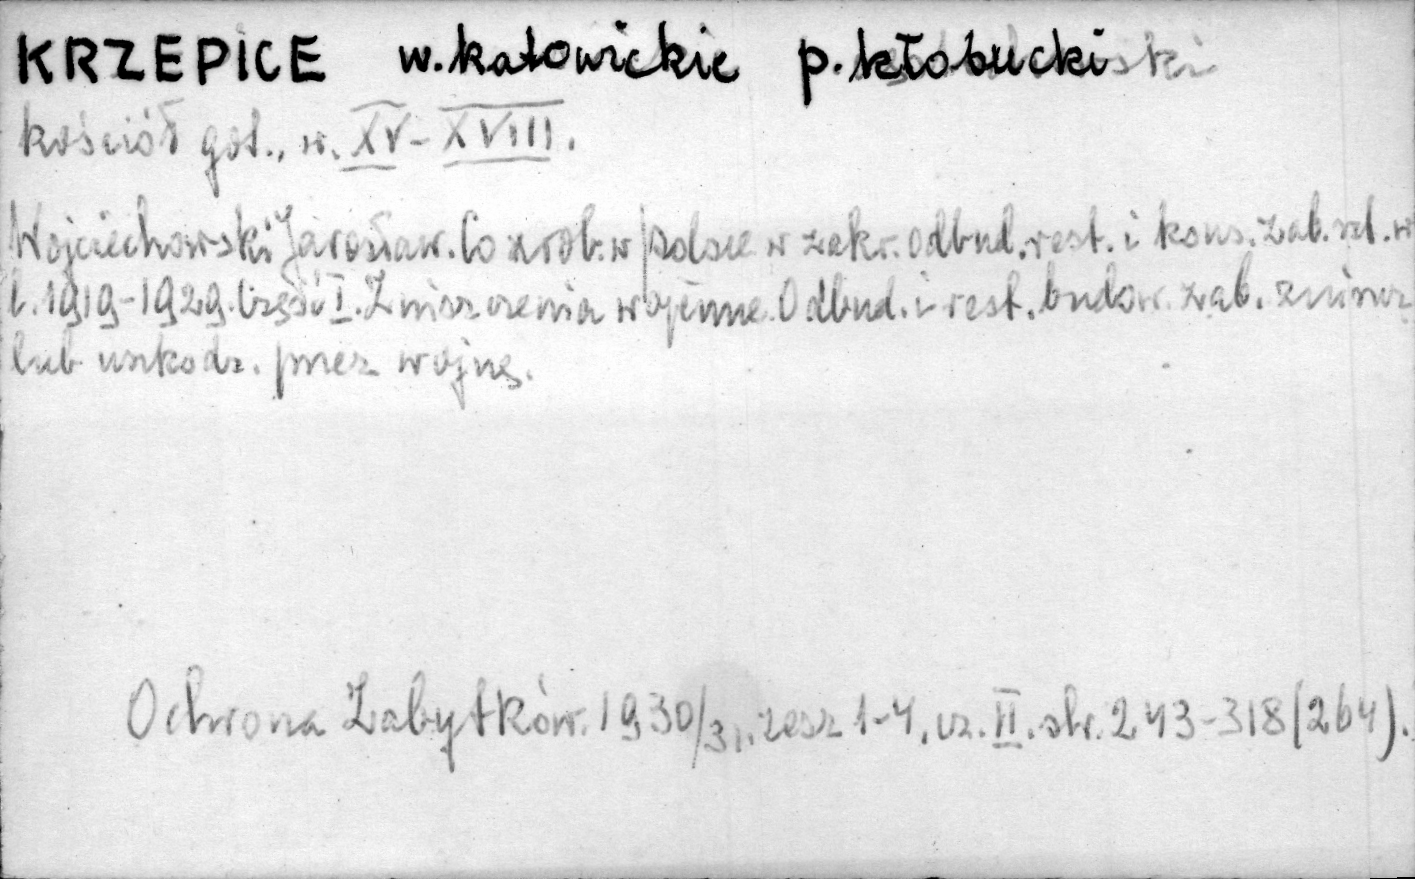 KRZEPICE w. katowickie p. kłobucki
kościół got., w. XV-XVIII.
Wojciechowski Jarosław. Co zrob. w Polsce w zakr. odbud. rest. i kons. zab. szt. w
l. 1919-1929. Część I. Zniszczenia wojenne. Odbud. i rest. budow. zab. zniszcz
lub uszkodz. przez wojnę.
Ochrona Zabytków. 1930/31. zesz 1-4, cz. II. str. 243-318 (264).